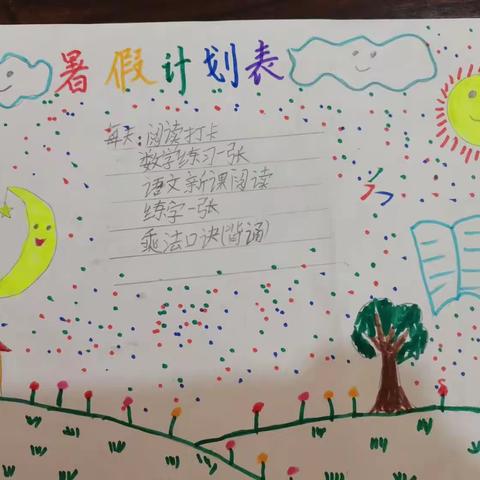 暑假计划表
每天:阅读打卡
数学练习一张
语文新课阅读
练字一张
乘法口诀(背诵)